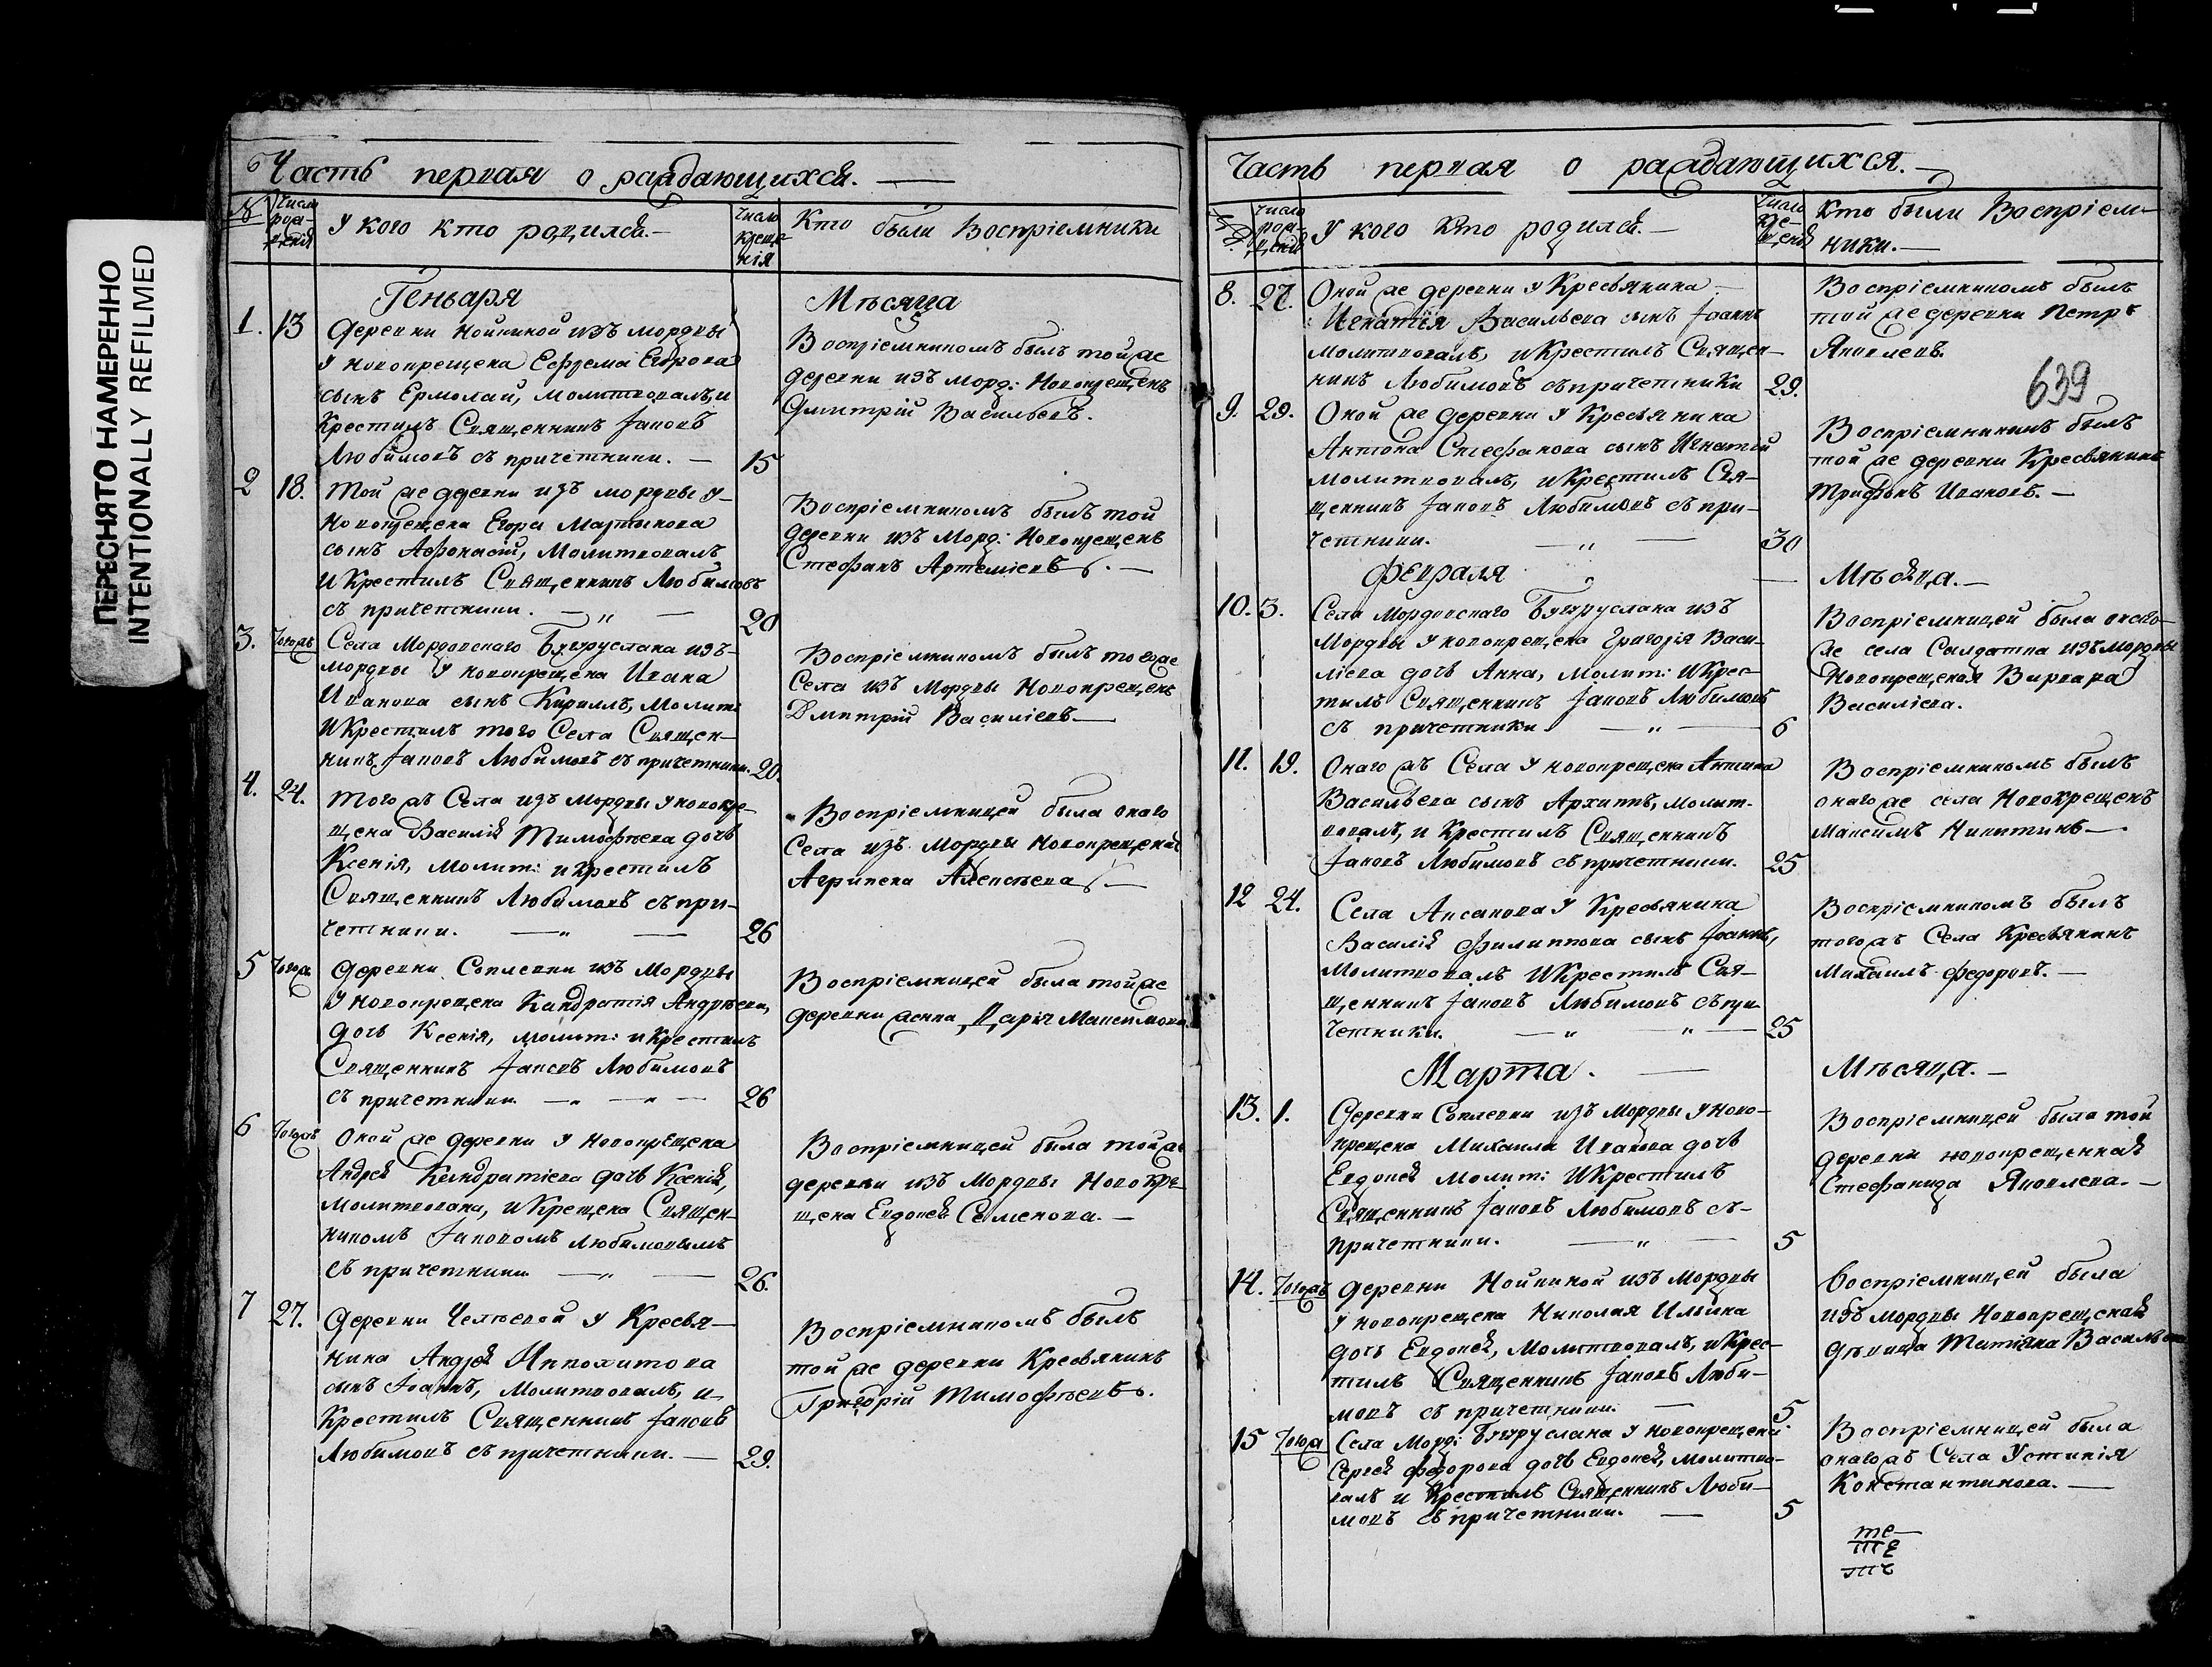 ПЕРЕСНЯТО НАМЕРЕННО
INTENTIONALLY REFILMED
Часть первая о раждающихся.
№
Число рож-денія
У кого кто родился.
Число креще-нія
Кто были Воспріемники
Геньваря
Мѣсяца
1. 13
деревни Нойкиной изъ мордвы
у новокрещена Ефрема Егорова
сынъ Ермолай, молитвовалъ, и
Крестилъ Священникъ Іаковъ
Любимовъ съ причетники. — 15
Воспріемникомъ былъ той же
деревни изъ морд: Новокрещенъ
Дмитрій Васильевъ.
2 18.
той же деревни изъ мордвы у
новокрещена Егора Мартынова
сынъ Афонасій, Молитвовалъ
и Крестилъ Священникъ Любимовъ
съ причетники. — „ — 20
Воспріемникомъ былъ той
деревни изъ Морд: Новокрещенъ
Стефанъ Артеміевъ. —
3. Тогожъ
Села Мордовскаго Бугуруслана изъ
мордвы у новокрещена Ивана
Иванова сынъ Кириллъ, Молит:
и Крестилъ того Села Священ-
никъ Іаковъ Любимовъ съ причетники. 20.
Воспріемникомъ былъ того же
Села изъ Мордвы Новокрещенъ
Дмитрій Василіевъ —
4. 24.
того жъ Села изъ Мордвы у новокре-
щена Василія Тимофѣева дочь
Ксенія, молит: и крестилъ
Священникъ Любимовъ съ при-
четники. — „ — 26
Воспріемницей была онаго
Села изъ Мордвы Новокрещеная
Агрипена Алексѣева —
5 Тогожъ
деревни Соплевки изъ Мордвы
у новокрещена Кандратія Андрѣева,
дочь Ксенія, молит: и крестилъ
Священникъ Іаковъ Любимовъ
съ причетники — „ — „ — 26
Воспріемницей была той же
деревни женка Дарья Максимова
6 Тогожъ
Оной же деревни у Новокрещена
Андрея Кандратіева дочь Ксенія,
молитвована, и Крещена Священ-
никомъ Іаковомъ Любимовымъ
съ причетники — „ — 26.
Воспріемницей была той же
деревни изъ Мордвы Новокре-
щена Евдокея Семенова. —
7 27.
Деревни Челѣевой у Кресья-
нина Андрея Иппохитова
сынъ Іоаннъ, Молитвовалъ, и
Крестилъ Священникъ Іаковъ
Любимовъ съ причетники. — 29.
Воспріемникомъ былъ
той же деревни Кресьянинъ
Григорій Тимофѣевъ.
Часть первая о раждающихся. —
№
Число рож-денія
У кого кто родился. —
Число кре-щенія
Кто были Воспріем-
ники. —
8. 27.
Оной же деревни у Кресьянина
Игнатія Васильева сынъ Іоаннъ
молитвовалъ, и Крестилъ Священ-
никъ Любимовъ съ причетники 29.
Воспріемникомъ былъ
той же деревни Петръ
Яковлевъ.
639
9. 29.
Оной же деревни у Кресьянина
Антона Стефанова сынъ Игнатій
молитвовалъ, и Крестилъ Свя-
щенникъ Іаковъ Любимовъ съ при-
четники. — „ — 30
Воспріемникомъ былъ
той же деревни Кресьянинъ
Трифонъ Ивановъ. —
Февраля
Мѣсяца. —
10. 3.
Села Мордовскаго Бугуруслана изъ
Мордвы у новокрещена Григорія Васи-
ліева дочь Анна, молит: и Крес-
тилъ Священникъ Іаковъ Любимовъ
съ причетники — „ — 6
Воспріемницей была онаго
же села Салдатка изъ Мордвы
Новокрещеная Варвара
Василіева.
11. 19.
Онаго жъ Села у новокрещена Антипа
Васильева сынъ Архиппъ, молит-
вовалъ, и Крестилъ Священникъ
Іаковъ Любимовъ съ причетники. 25
Воспріемникомъ былъ
онаго же села Новокрещенъ
Максимъ Никитинъ —
12 24.
Села Аксакова у Кресьянина
Василія Филиппова сынъ Іоаннъ,
молитвовалъ и Крестилъ Свя-
щенникъ Іаковъ Любимовъ съ при-
четники. — „ „ — 25
Воспріемникомъ былъ
того жъ Села Кресьянинъ
Михаилъ Федоровъ. —
Марта. —
Мѣсяца. —
13. 1.
Деревни Соплевки изъ Мордвы у Ново-
крещена Михаила Иванова дочь
Евдокея молит: и Крестилъ
Священникъ Іаковъ Любимовъ съ
причетники. — „ — 5
Воспріемницей была той
деревни новокрещенная
Стефанида Яковлева. —
14. Тогожъ
деревни Нойкиной изъ Мордвы
у новокрещена Николая Ильина
дочь Евдокея, Молитвовалъ, и Крес-
тилъ Священникъ Іаковъ Люби-
мовъ съ причетники. — 5.
Воспріемницей была
изъ Мордвы Новокрещеная
дѣвица Татіана Васильева
15 Тогожъ
Села Морд: Бугуруслана у новокрещена
Сергея Федорова дочь Евдокея, молитво-
валъ и Крестилъ Священникъ Люби-
мовъ съ причетники. — 5
Воспріемницей была
онаго жъ Села Устинія
Константинова. —